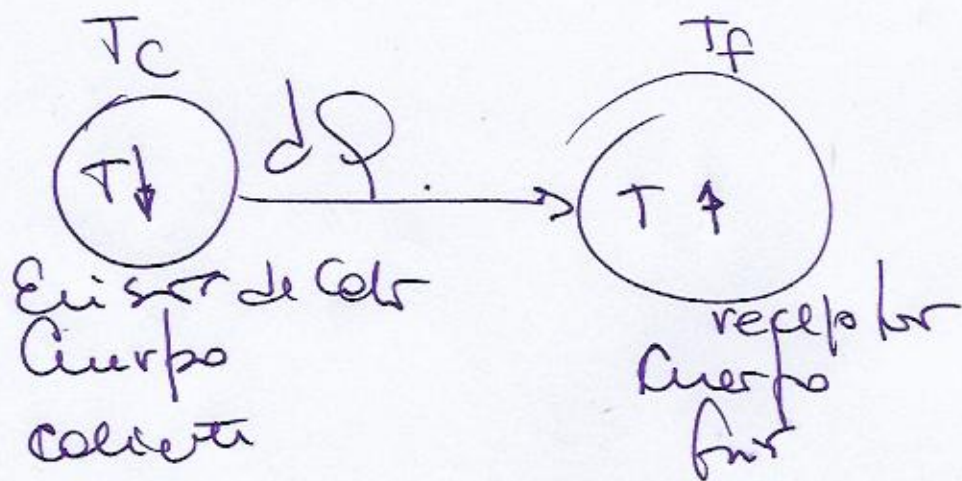 Tc
Tf
T↓
dQ
T ↑
Emisor de Calor
Cuerpo
caliente
receptor
Cuerpo
frío